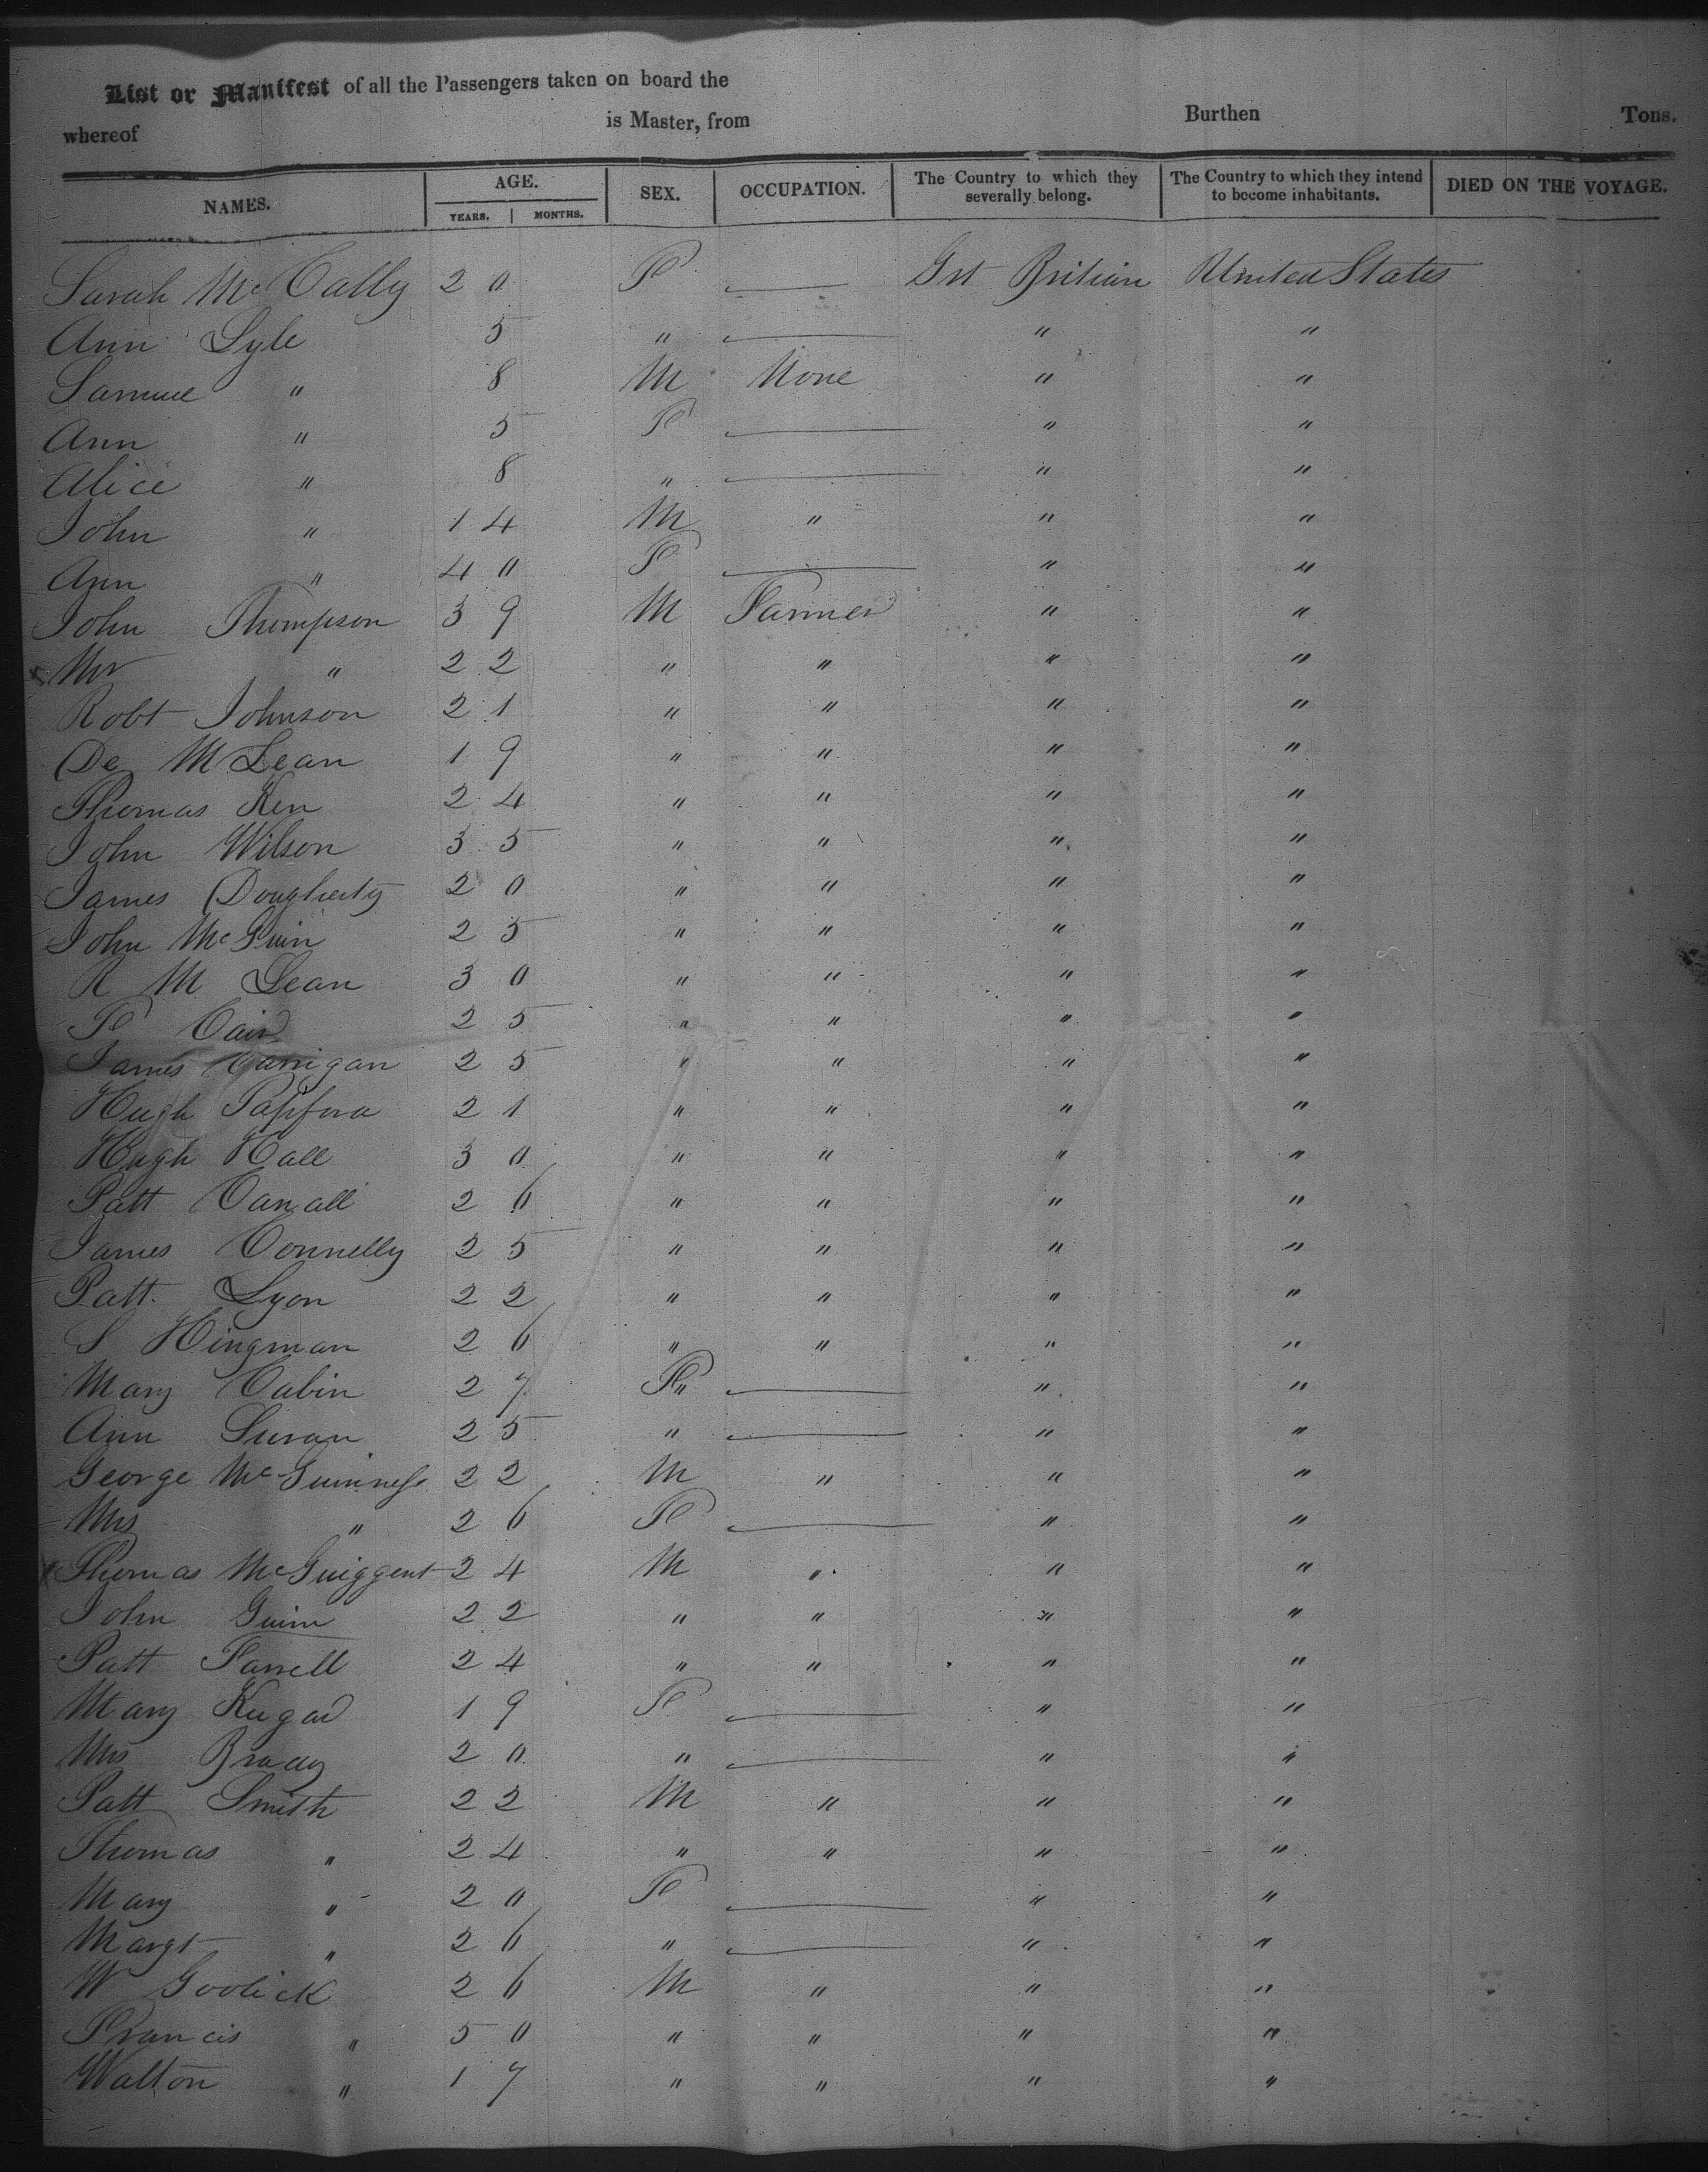 List or Manifest of all the Passengers taken on board the
whereof is Master, from Burthen Tons.
NAMES. AGE. YEARS. MONTHS. SEX. OCCUPATION. The Country to which they severally belong. The Country to which they intend to become inhabitants. DIED ON THE VOYAGE.
Sarah Mc Cally 20 F — Grt Britian United States
Ann Lyle 5 " — " "
Samuel " 8 M None " "
Ann " 5 F — " "
Alice " 8 " — " "
John " 14 M " " "
Ann " 40 F — " "
John Thompson 39 M Farmer " "
Mr " 22 " " " "
Robt Johnson 21 " " " "
De McLean 19 " " " "
Thomas Ken 24 " " " "
John Wilson 35 " " " "
James Dougherty 20 " " " "
John Mc 25 " " " "
R M Lean 30 " " " "
F Cain 25 " " " "
James Carrigan 25 " " " "
Hugh 21 " " " "
Hugh Hall 30 " " " "
Patt 26 " " " "
James Connelly 25 " " " "
Patt Lyon 22 " " " "
S Hingman 26 " " " "
Mary Cabin 27 F" — " "
Ann 25 " — " "
George McGuinness 22 M " " "
Mrs " 26 F — " "
Thomas McGuiggent 24 M " " "
John Guinn 22 " " " "
Patt Farrell 24 " " " "
Mary 19 F — " "
Mrs Brady 20 " — " "
Patt Smith 22 M " " "
Thomas " 24 " " " "
Mary " 20 F — " "
Margt " 26 " — " "
W Goolick 26 M " " "
Francis " 50 " " " "
Walton " 17 " " " "